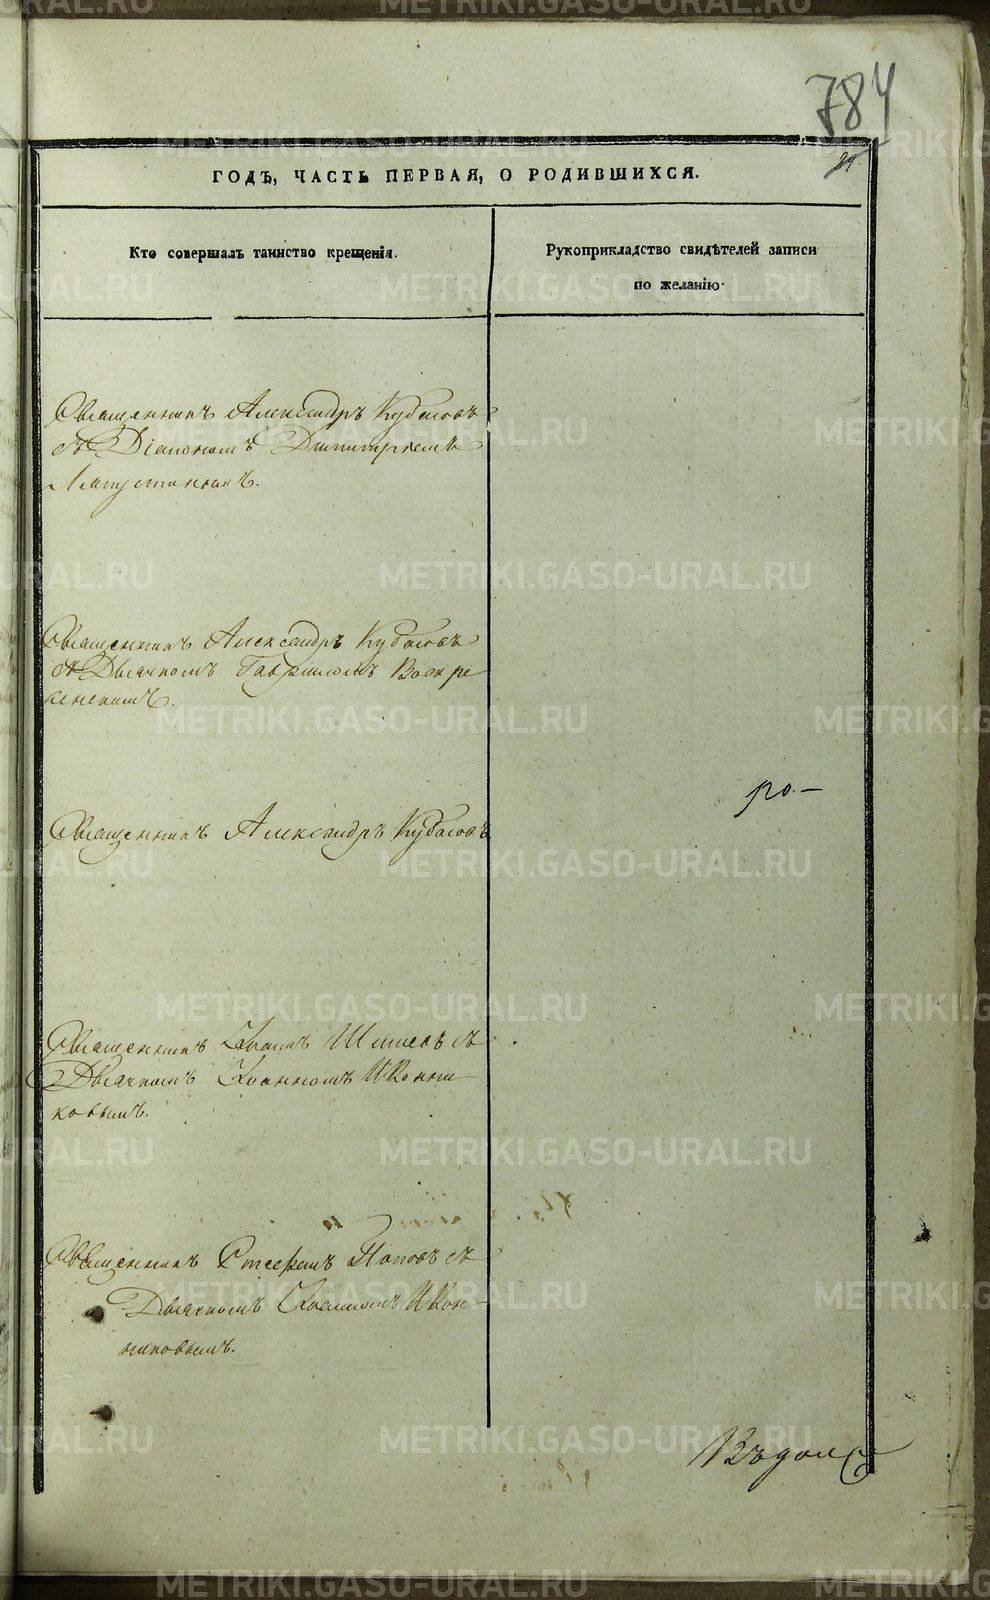 784
ГОДЪ, ЧАСТЬ ПЕРВАЯ, О РОДИВШИХСЯ.
Кто совершалъ таинство крещенія.
Рукоприкладство свидѣтелей записи
по желанію
Священникъ Александръ Кубасовъ
съ Діакономъ Димитріемъ
Священникъ Александръ Кубасовъ
съ Дьячкомъ Гавріиломъ Воскре
сенскимъ.
Священникъ Александръ Кубасовъ
Священникъ Іоаннъ Шишевъ съ
Дьячкомъ Іоанномъ Иконни
ковымъ.
Священникъ Стефанъ Поповъ съ
Дьячкомъ Іоанномъ Икон-
никовымъ.
METRIKI.GASO-URAL.RU